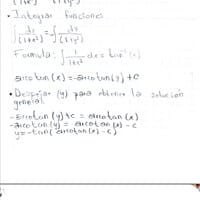 • Integrar funciones
∫ dx/(1+x²) = -∫ dy/(1+y²)
Formula: ∫ 1/(1+x²) dx = tan⁻¹(x)
arcotan(x) = -arcotan(y) + C
• Despejar (y) para obtener la solución
general
-arcotan(y) + c = arcotan(x)
-arcotan(y) = arcotan(x) - c
y = -tan(arcotan(x) - c)